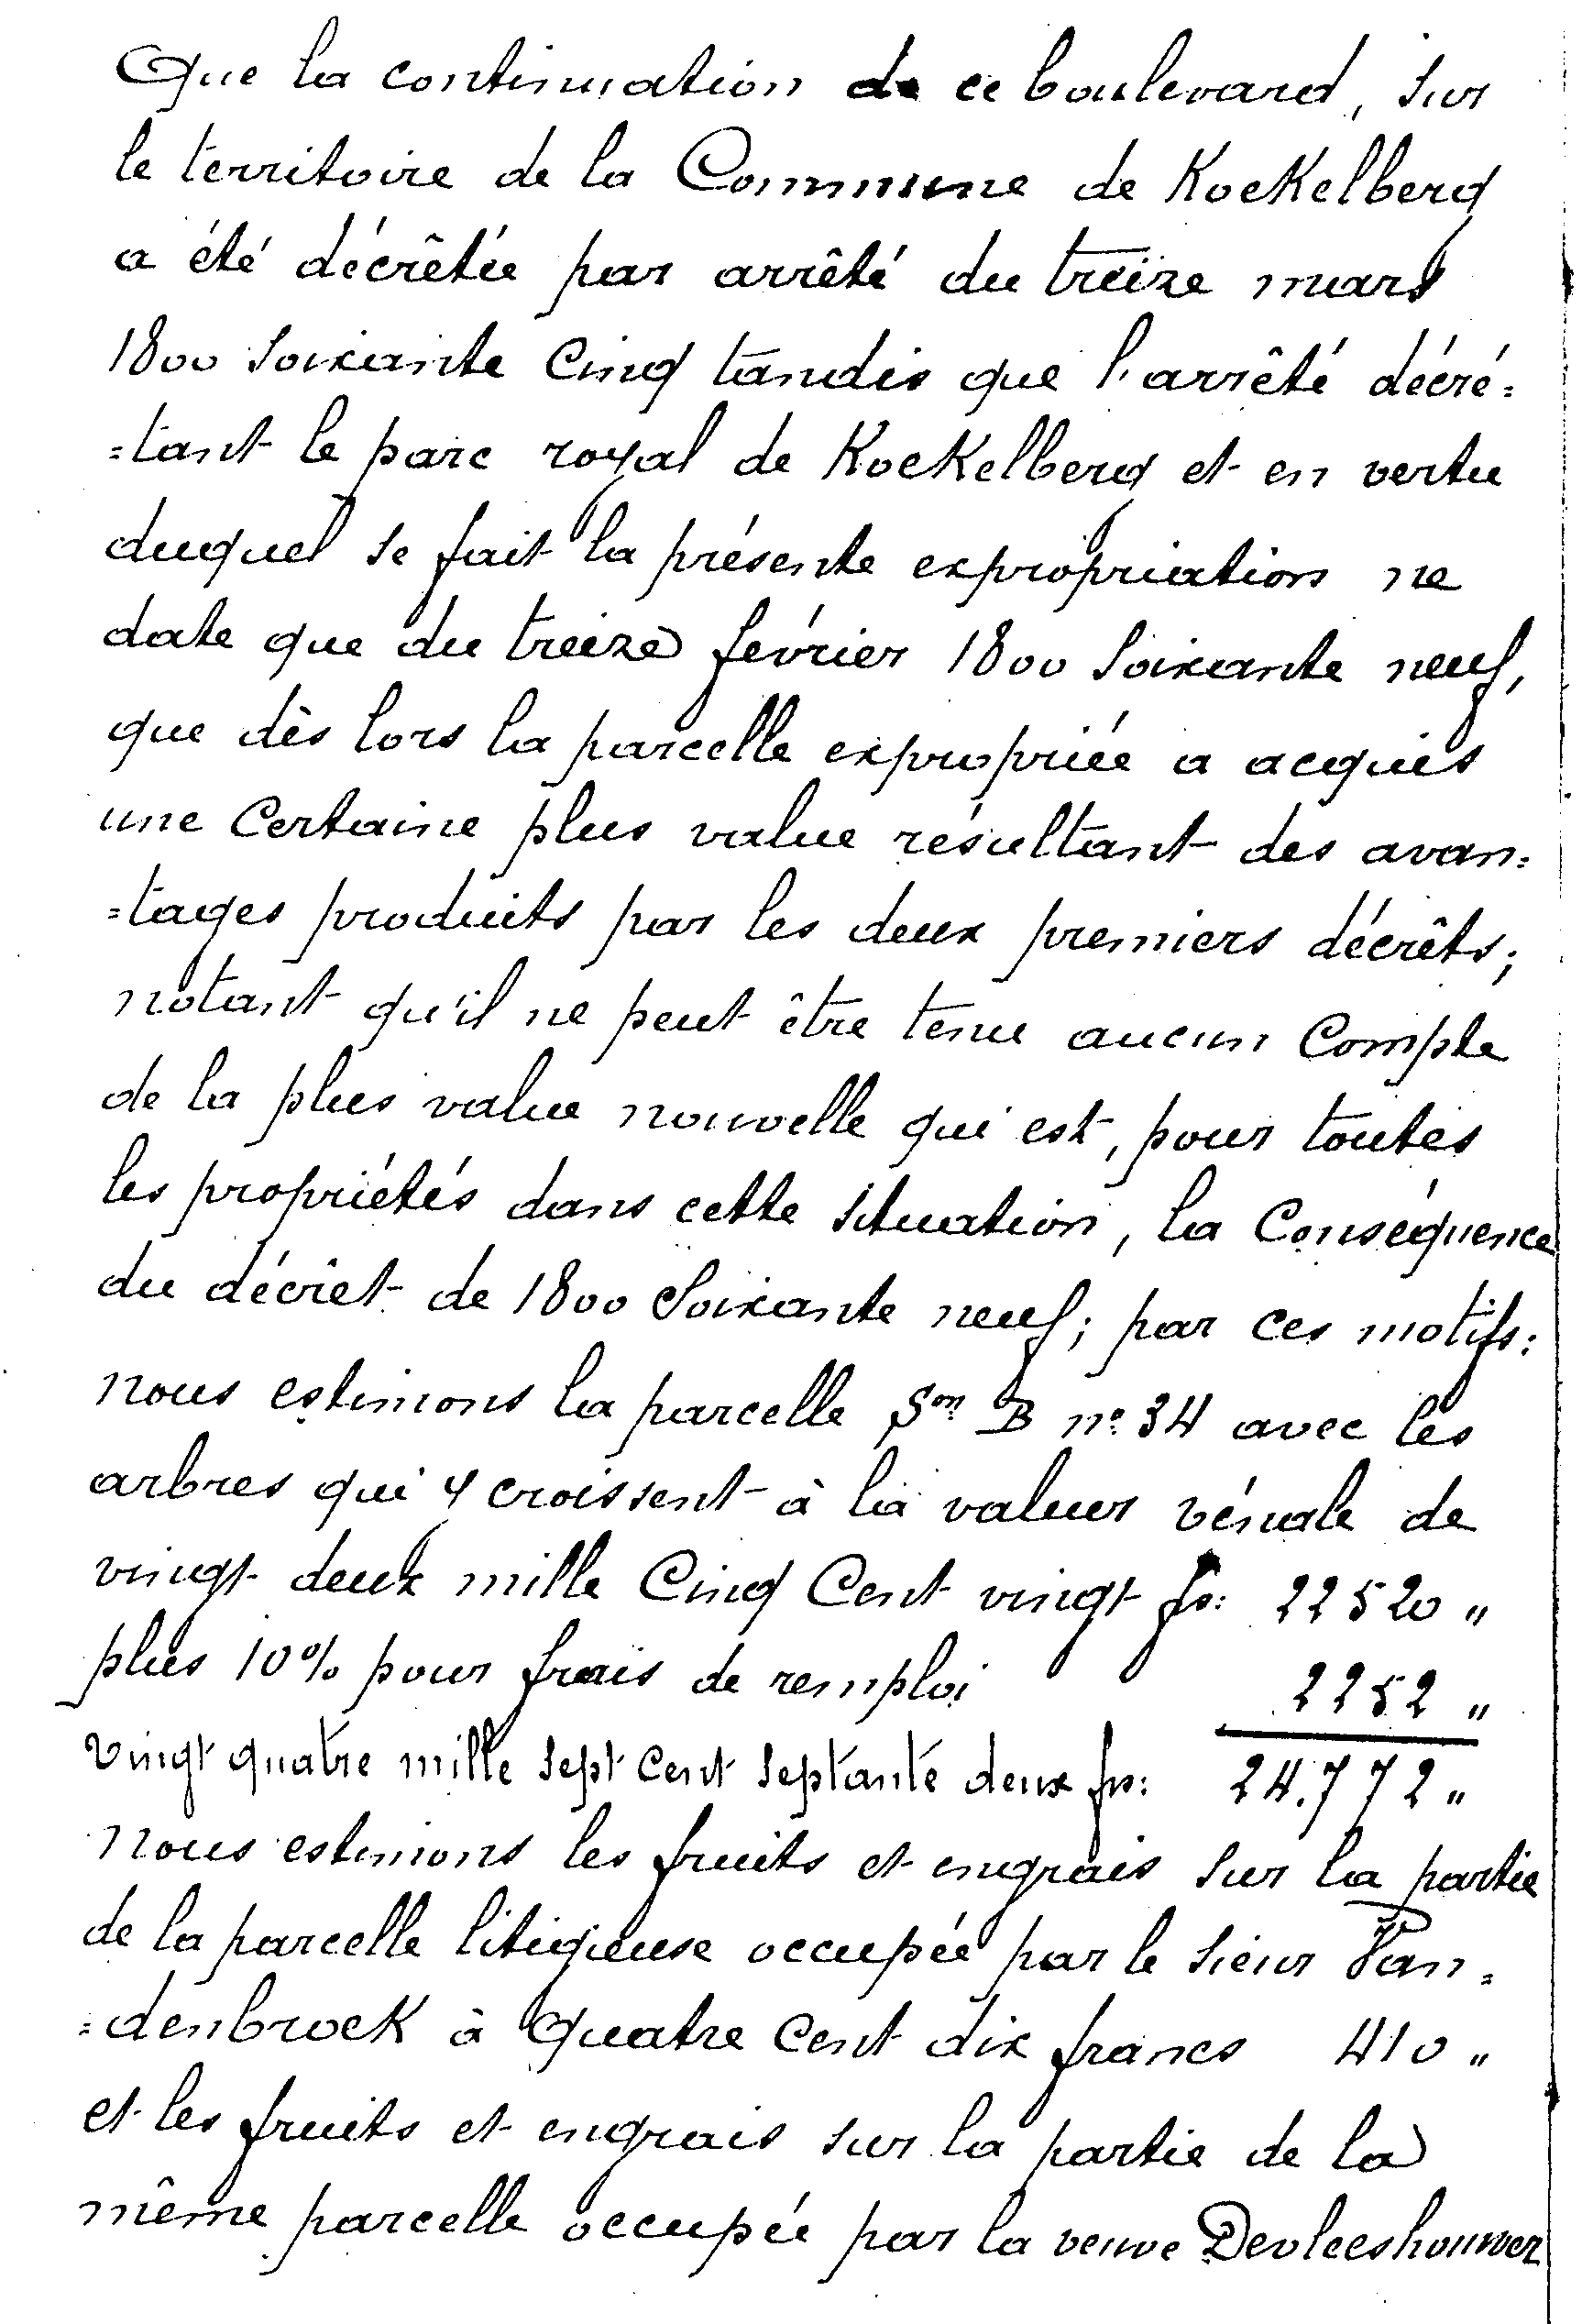 Que la continuation de ce boulevard, sur
le territoire de la Commune de Koekelberg
a été décrêtée par arrêté du treize mars
1800 soixante cinq tandis que l'arrêté décré=
=tant le parc royal de Koekelberg et en vertu
duquel se fait la présente expropriation ne
date que du treize février 1800 soixante neuf,
que dès lors la parcelle expropriée a acquis
une certaine plus value résultant des avan=
=tages produits par les deux premiers décrêts;
notant qu'il ne peut être tenu aucun compte
de la plus value nouvelle qui est, pour toutes
les propriétés dans cette situation, la conséquence
du décrêt de 1800 soixante neuf; par ces motifs:
nous estimons la parcelle Son B no 34 avec les
arbres qui y croissent à la valeur vénale de
vingt deux mille cinq cent vingt fs: 22520 "
plus 10% pour frais de remploi 2252 "
vingt quatre mille sept cent septante deux frs: 24.772 "
nous estimons les fruits et engrais sur la partie
de la parcelle litigieuse occupée par le sieur Van=
=denbroek à quatre cent dix francs 410 "
et les fruits et engrais sur la partie de la
même parcelle occupée par la veuve Devleeshouwer